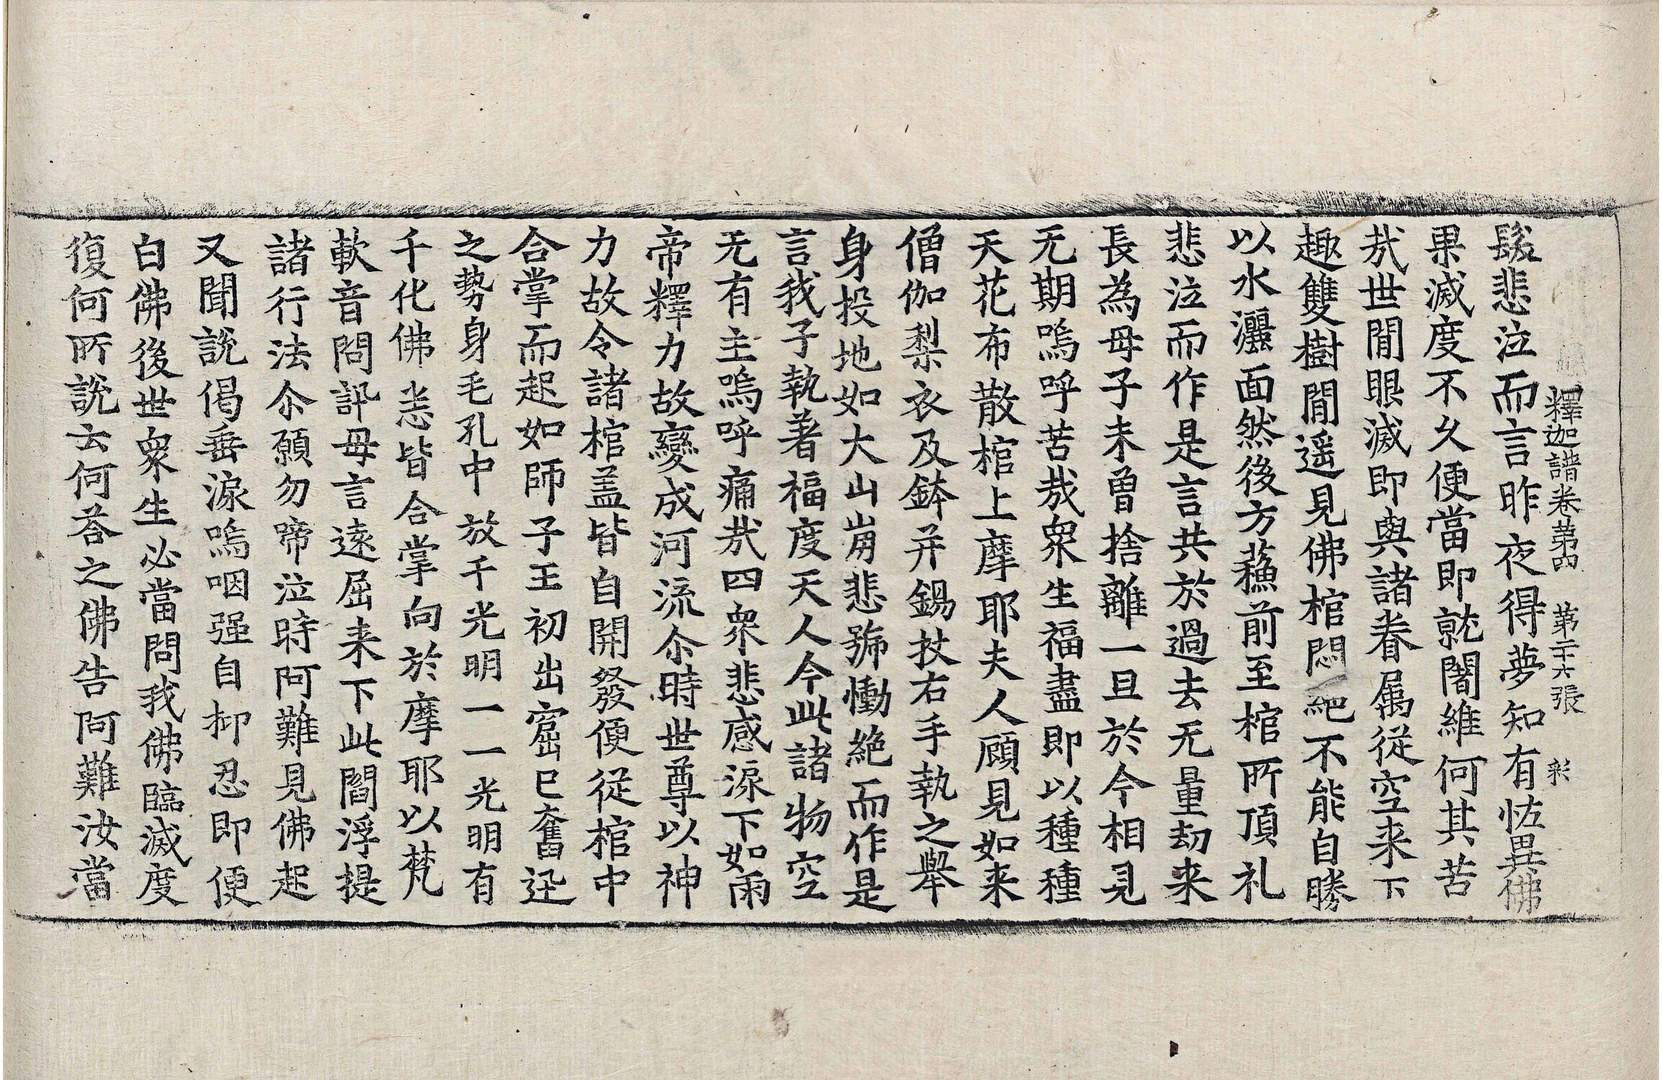 釋迦譜卷苐四 第二十六張 彩
髮悲泣而言昨夜得夢知有恠異佛
果滅度不久便當即就闍維何其苦
㢤世間眼滅即與諸眷属従空来下
趣雙樹間遥見佛棺悶絕不能自勝
以水灑面然後方蘓前至棺所頂礼
悲泣而作是言共於過去无量劫来
長為母子未曽捨離一旦於今相見
无期嗚呼苦㢤衆生福盡即以種種
天花布散棺上摩耶夫人顧見如来
僧伽梨衣及鉢并錫杖右手執之舉
身投地如大山崩悲號慟絶而作是
言我子執著福度天人今此諸物空
无有主嗚呼痛㢤四衆悲感淚下如雨
帝釋力故變成河流尒時世尊以神
力故令諸棺盖皆自開發便従棺中
合掌而起如師子王初出窟巳奮迅
之勢身毛孔中放千光明一一光明有
千化佛悉皆合掌向於摩耶以梵
軟音問訊母言遠屈来下此閻浮提
諸行法尒願勿啼泣時阿難見佛起
又聞説偈垂淚嗚咽强自抑忍即便
白佛後世衆生必當問我佛臨滅度
復何所説云何荅之佛告阿難汝當